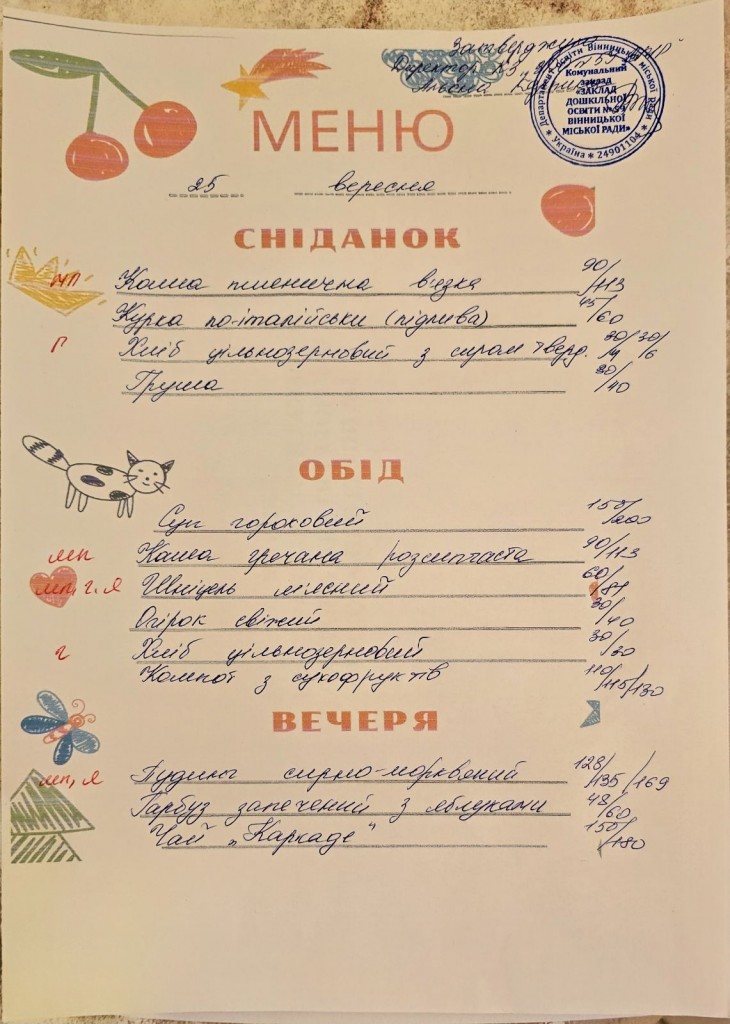 Затверджую
Директор КЗ
Департамент освіти Вінницької міської ради
Комунальний
заклад
«ЗАКЛАД
ДОШКІЛЬНОЇ
ОСВІТИ №
ВІННИЦЬКОЇ
МІСЬКОЇ РАДИ»
* Україна * 24901104 *
МЕНЮ
25 вересня
СНІДАНОК
мп Каша пшенична в'язка 90/113
Курка по-італійськи (підлива) 45/60
г Хліб цільнозерновий з сиром тверд. 20/4 30/6
Груша 30/40
ОБІД
Суп гороховий 150/200
мп Каша гречана розсипчаста 90/113
мп, г, я Шніцель мясний 60/81
Огірок свіжий 30/40
г Хліб цільнозерновий 30/30
Компот з сухофруктів 110/115/130
ВЕЧЕРЯ
мп, я Пудинг сирно-морквяний 128/135/169
Гарбуз запечений з яблуками 48/60
Чай „Каркаде" 150/180